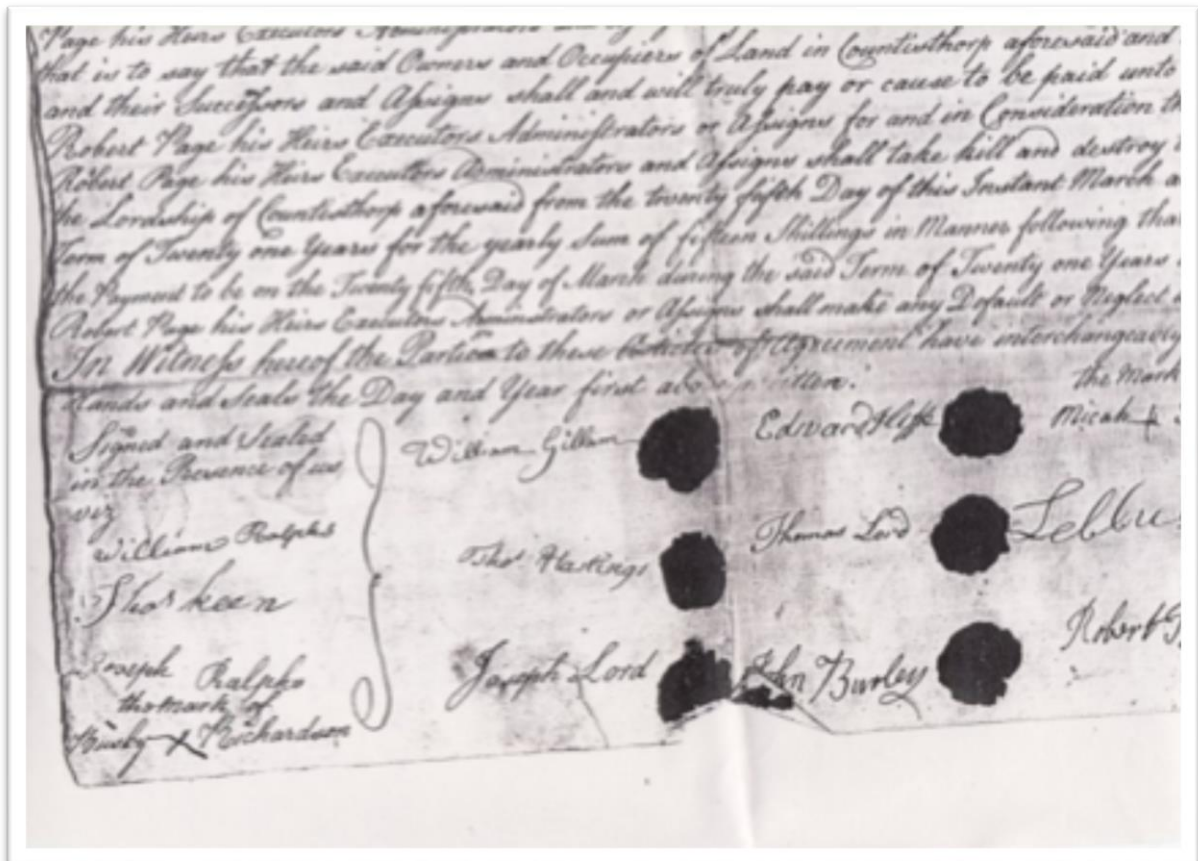 Page his Heirs Executors Administrators
that is to say that the said Owners and Occupiers of Land in Countisthorp aforesaid and
and their Successors and Assigns shall and will truly pay or cause to be paid unto
Robert Page his Heirs Executors Administrators or Assigns for and in Consideration th
Robert Page his Heirs Executors Administrators and Assigns shall take kill and destroy
the Lordship of Countisthorp aforesaid from the twenty fifth Day of this Instant March a
Term of Twenty one Years for the yearly Sum of fifteen Shillings in Manner following that
the Payment to be on the Twenty fifth Day of March during the said Term of Twenty one Years
Robert Page his Heirs Executors Administrators or Assigns shall make any Default or Neglect
In Witness hereof the Parties to these Articles of Agreement have interchangeably
Hands and Seals the Day and Year first above written.
Signed and Sealed
in the Presence of us
viz
William Ralphs
Thos keen
Joseph Ralphs
the mark of
Busby X Richardson
William Gillam
Thos Hastings
Joseph Lord
Edward
Thomas Lord
John Burley
the Mark
Micah
Robert